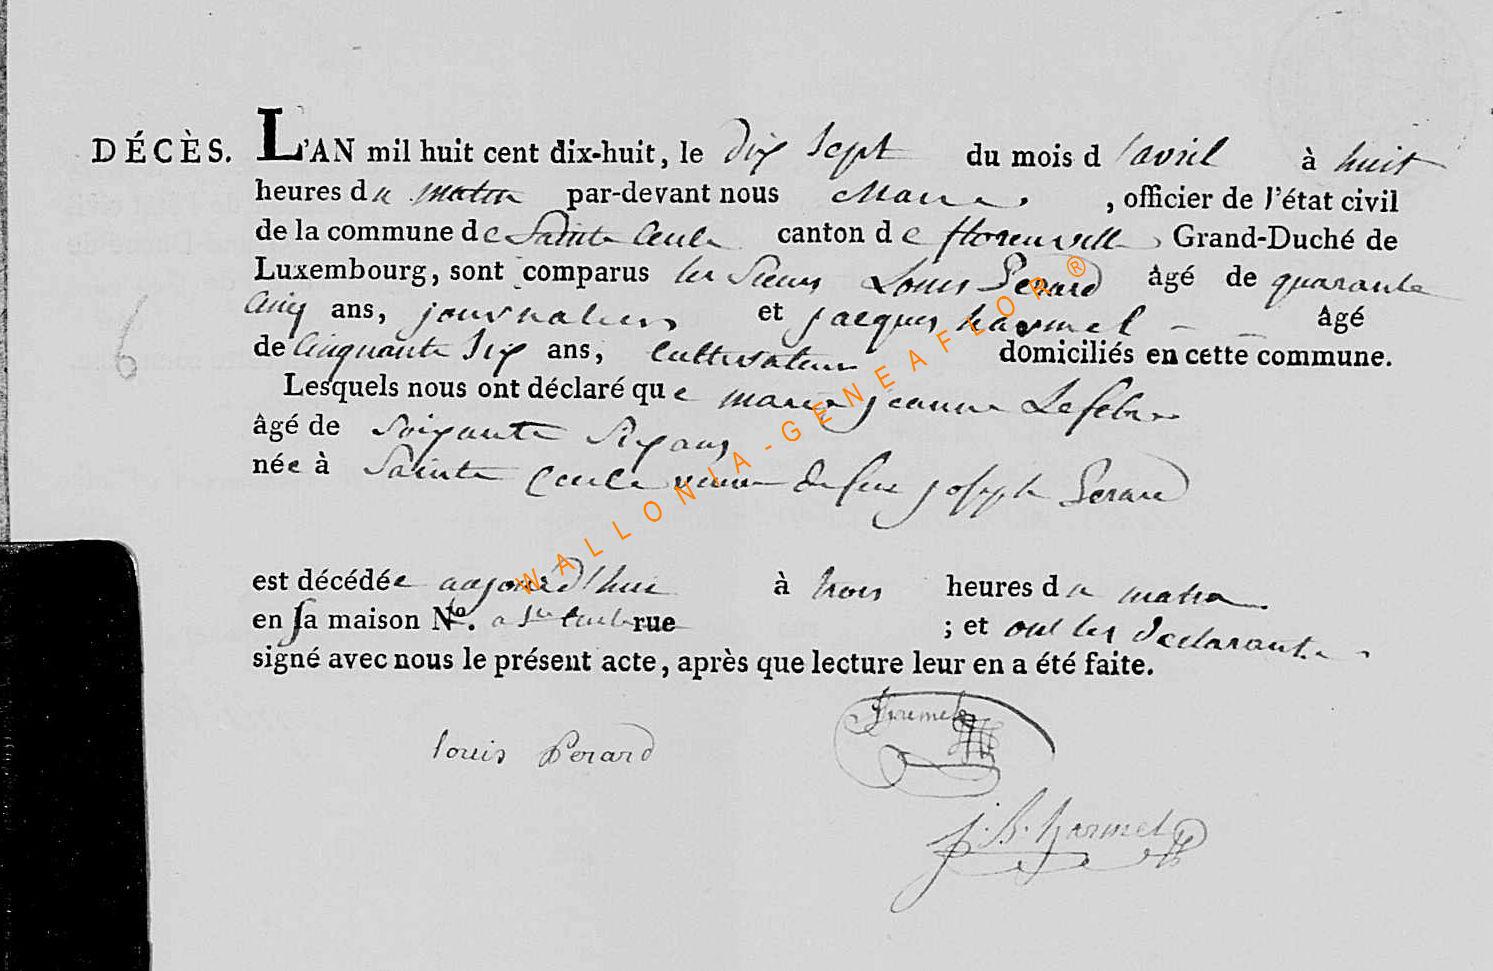 DÉCÈS. L'AN mil huit cent dix-huit, le dix sept du mois d'avril à huit
heures du matin par-devant nous Maire, officier de l'état civil
de la commune de Sainte Cecile canton de florenville, Grand-Duché de
Luxembourg, sont comparus les Sieurs Louis Perard âgé de quarante
Cinq ans, journalier et jacques harmel âgé
de Cinquante Six ans, Cultivateur domiciliés en cette commune.
Lesquels nous ont déclaré que marie jeanne Lefebre
âgé de Soixante Six ans
née à Sainte Cecile veuve de feu joseph Perard
est décédée aujourd'hui à trois heures du matin
en sa maison No. a Ste Cecile rue ; et ont les declarants
signé avec nous le présent acte, après que lecture leur en a été faite.
6
louis Perard
J. B. harmel
WALLONIA-GENEAFLOR ®